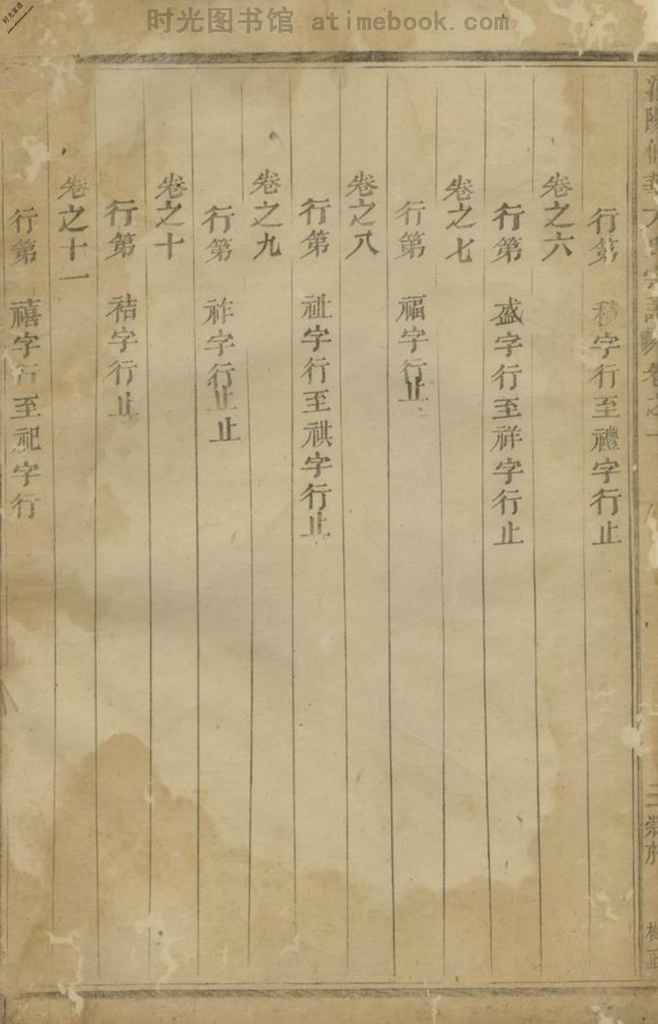 时光图书馆 atimebook.com
行第 字行至禮字行止
卷之六
行第 盛字行至祥字行止
卷之七
行第 福字行止
卷之八
行第 祉字行至祺字行止
卷之九
行第 祚字行止止
卷之十
行第 祮字行止
卷之十一
行第 禧字行至祀字行